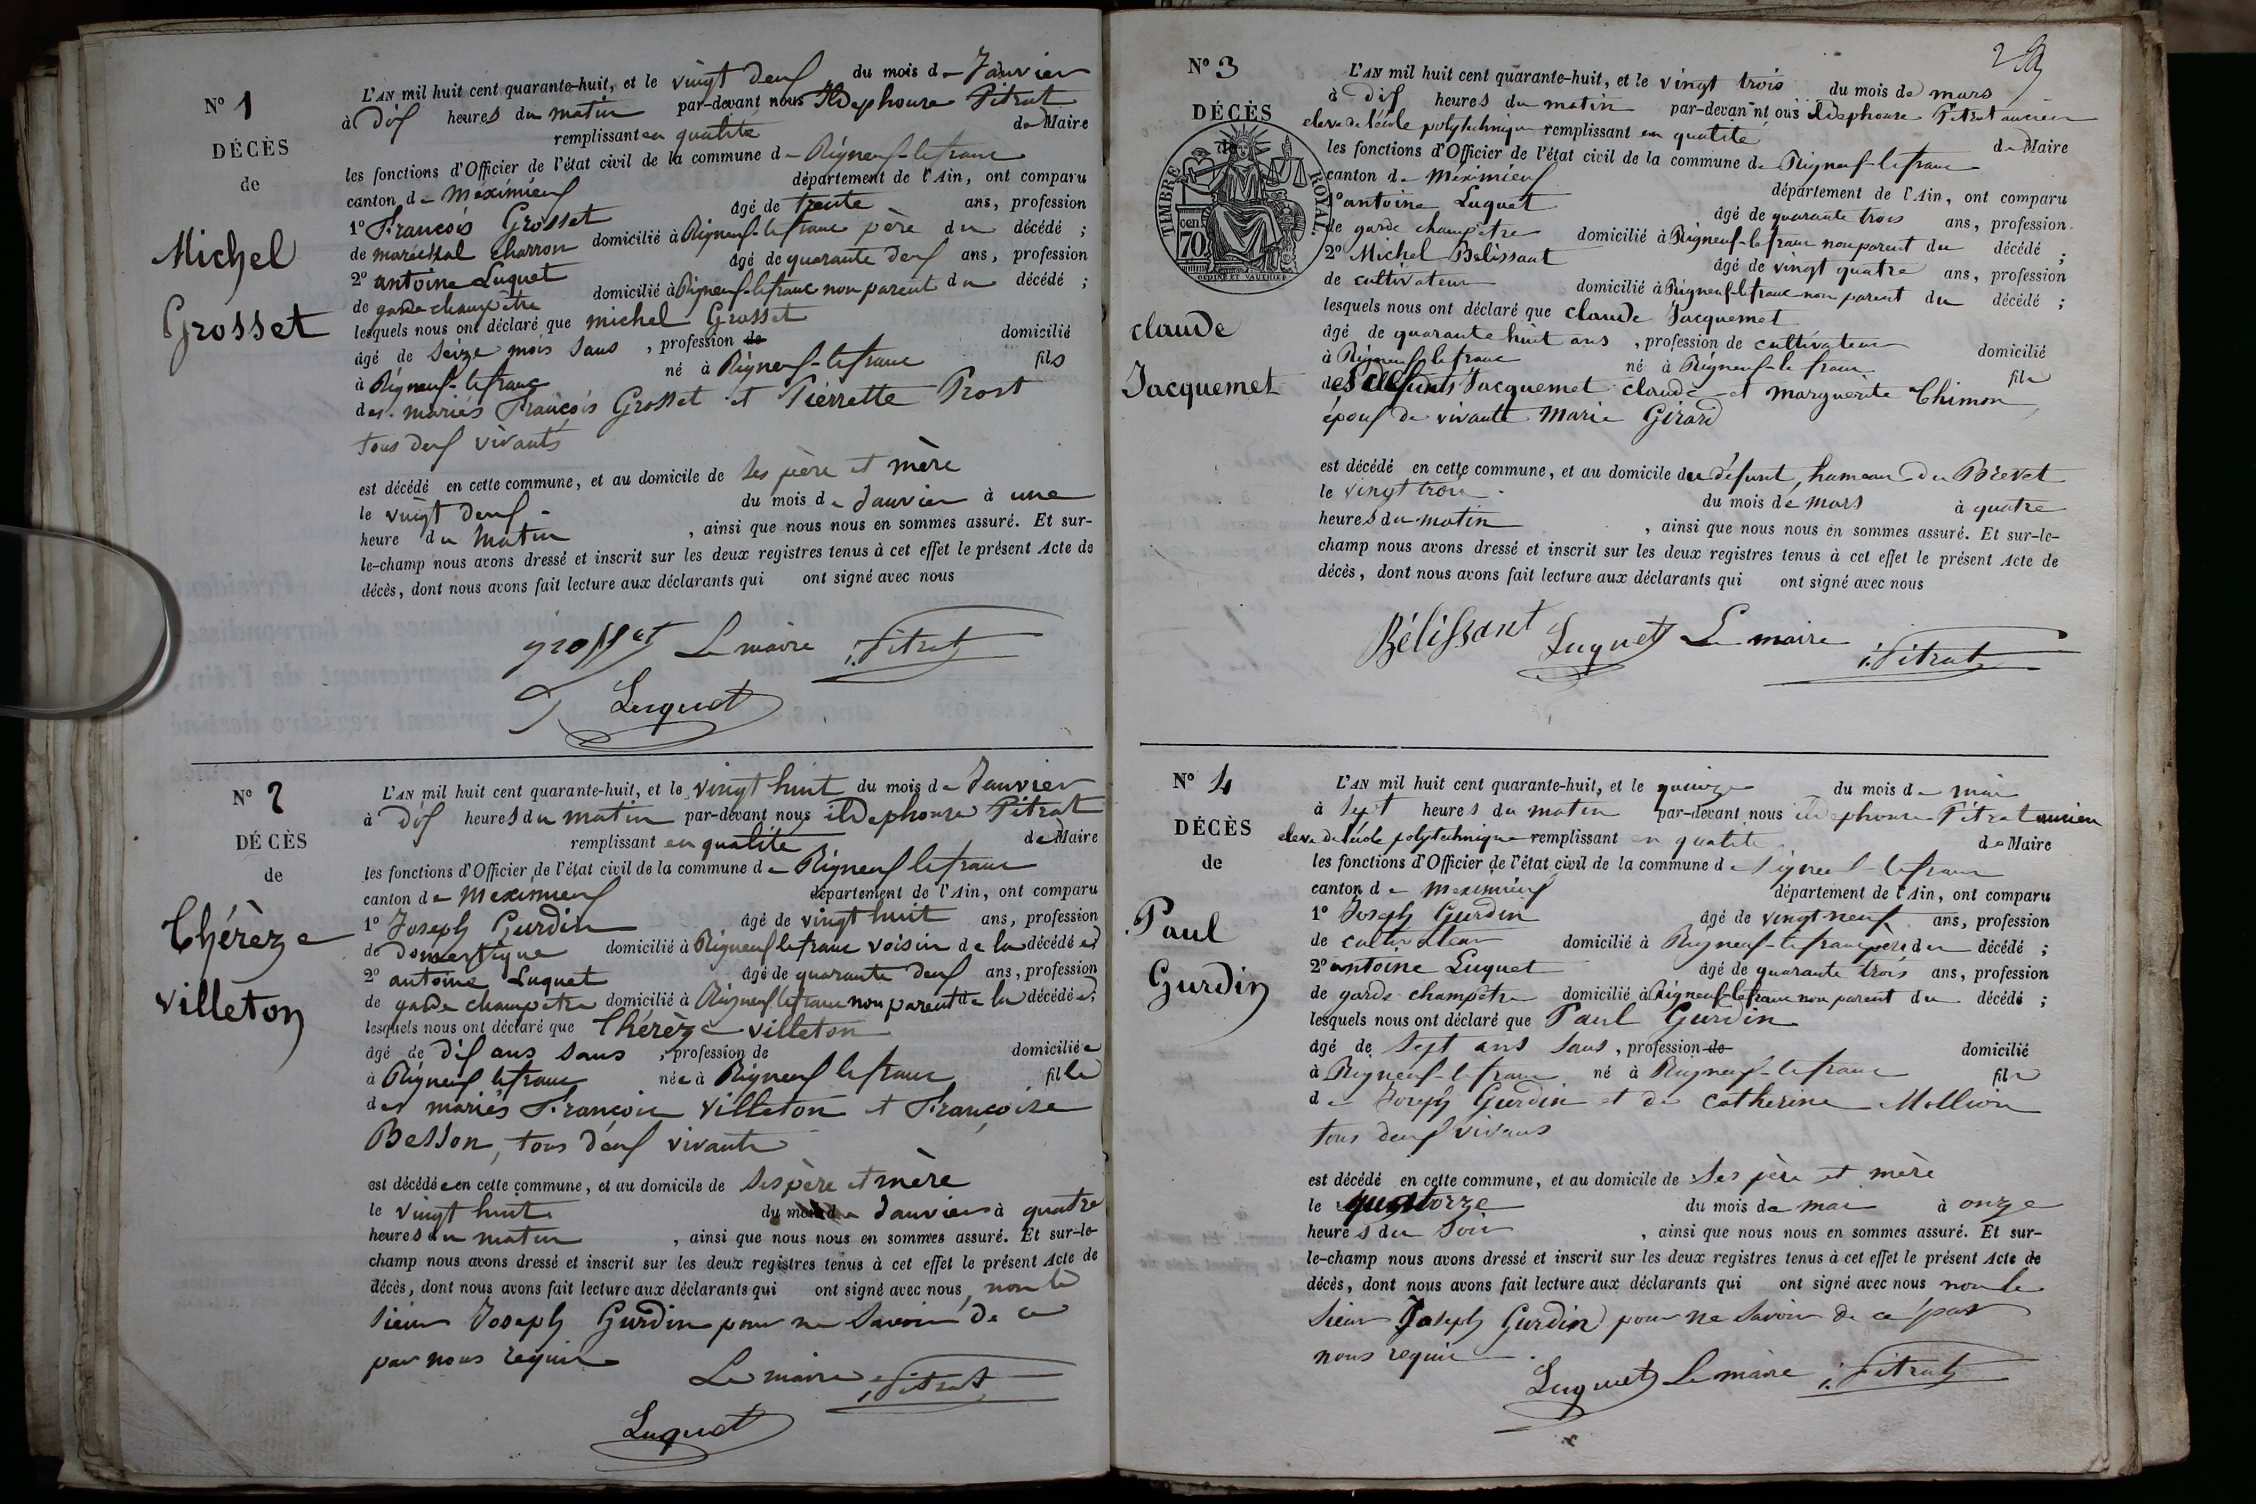 N° 1
DÉCÈS
de
Michel
Grosset
L'AN mil huit cent quarante-huit, et le vingt deux du mois de Janvier
à dix heures du matin par-devant nous Ildephonse Pitrat
remplissant en qualité de Maire
les fonctions d'Officier de l'état civil de la commune de Rigneux-le franc
canton de Meximieux département de l'Ain, ont comparu
1° François Grosset âgé de trente ans, profession
de maréchal charron domicilié à Rigneux-le franc père du décédé ;
2° antoine Luquet âgé de quarante deux ans, profession
de garde champêtre domicilié à Rigneux-le franc non parent du décédé ;
lesquels nous ont déclaré que michel Grosset
âgé de seize mois sans , profession de domicilié
à Rigneux-le franc né à Rigneux-le franc fils
des mariés François Grosset et Pierrette Prost
tous deux vivants
est décédé en cette commune, et au domicile de ses père et mère
le vingt deux du mois de Janvier à une
heure du matin , ainsi que nous nous en sommes assuré. Et sur-
le-champ nous avons dressé et inscrit sur les deux registres tenus à cet effet le présent Acte de
décès, dont nous avons fait lecture aux déclarants qui ont signé avec nous
grosset Le maire i. Pitrat
Luquet
N° 2
DÉCÈS
de
Thérèze
villeton
L'AN mil huit cent quarante-huit, et le vingt huit du mois de Janvier
à dix heures du matin par-devant nous ildephonse Pitrat
remplissant en qualité de Maire
les fonctions d'Officier de l'état civil de la commune de Rigneux le franc
canton de Meximieux département de l'Ain, ont comparu
1° Joseph Gurdin âgé de vingt huit ans, profession
de domestique domicilié à Rigneux le franc voisin de la décédée ;
2° antoine Luquet âgé de quarante deux ans, profession
de garde champetre domicilié à Rigneux le franc non parent de la décédée ;
lesquels nous ont déclaré que Thérèze villeton
âgé de dix ans sans , profession de domiciliée
à Rigneux le franc née à Rigneux le franc fille
des mariés François villeton et Françoise
Besson, tous deux vivants
est décédée en cette commune, et au domicile de ses père et mère
le vingt huit du mois de Janvier à quatre
heures du matin , ainsi que nous nous en sommes assuré. Et sur-le-
champ nous avons dressé et inscrit sur les deux registres tenus à cet effet le présent Acte de
décès, dont nous avons fait lecture aux déclarants qui ont signé avec nous, non le
sieur Joseph Gurdin pour ne savoir de ce
par nous requis
Le maire i. Pitrat
Luquet
N° 3
DÉCÈS
de
TIMBRE ROYAL.
cen.
70
claude
Jacquemet
L'AN mil huit cent quarante-huit, et le vingt trois du mois de mars
à dix heures du matin par-devant nous ildephonse Pitrat ancien
eleve de l'école polytechnique remplissant en qualité de Maire
les fonctions d'Officier de l'état civil de la commune de Rigneux-le franc
canton de Meximieux département de l'Ain, ont comparu
1° antoine Luquet âgé de quarante trois ans, profession
de garde champêtre domicilié à Rigneux-le franc non parent du décédé ;
2° Michel Belissant âgé de vingt quatre ans, profession
de cultivateur domicilié à Rigneux-le franc non parent du décédé ;
lesquels nous ont déclaré que claude Jacquemet
âgé de quarante huit ans , profession de cultivateur domicilié
à Rigneux le franc né à Rigneux-le franc fils
des défunts Jacquemet claude et marguerite Thimon
époux de vivante Marie Girard
est décédé en cette commune, et au domicile du défunt, hameau du Brevet
le vingt trois du mois de mars à quatre
heures du matin , ainsi que nous nous en sommes assuré. Et sur-le-
champ nous avons dressé et inscrit sur les deux registres tenus à cet effet le présent Acte de
décès, dont nous avons fait lecture aux déclarants qui ont signé avec nous
Bélissant Luquet Le maire i. Pitrat
N° 4
DÉCÈS
de
Paul
Gurdin
L'AN mil huit cent quarante-huit, et le quinze du mois de mai
à sept heures du matin par-devant nous ildephonse Pitrat ancien
eleve de l'école polytechnique remplissant en qualité de Maire
les fonctions d'Officier de l'état civil de la commune de Rigneux-le franc
canton de Meximieux département de l'Ain, ont comparu
1° Joseph Gurdin âgé de vingt neuf ans, profession
de cultivateur domicilié à Rigneux-le franc père du décédé ;
2° antoine Luquet âgé de quarante trois ans, profession
de garde champêtre domicilié à Rigneux-le franc non parent du décédé ;
lesquels nous ont déclaré que Paul Gurdin
âgé de sept ans sans , profession de domicilié
à Rigneux-le franc né à Rigneux-le franc fils
de Joseph Gurdin et de catherine Mollion
tous deux vivans
est décédé en cette commune, et au domicile de ses père et mère
le quatorze du mois de mai à onze
heures du soir , ainsi que nous nous en sommes assuré. Et sur-
le-champ nous avons dressé et inscrit sur les deux registres tenus à cet effet le présent Acte de
décès, dont nous avons fait lecture aux déclarants qui ont signé avec nous non le
sieur Joseph Gurdin pour ne savoir de ce par
nous requis
Luquet Le maire i. Pitrat